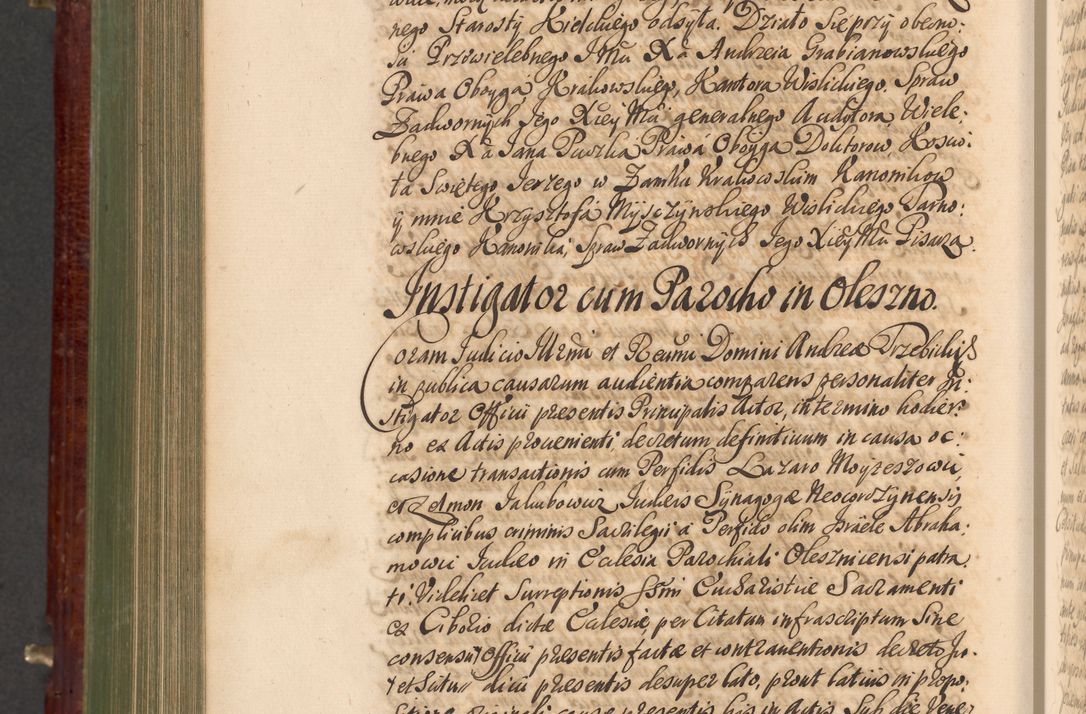 nego Starosty Kieleckiego odsyła. Działo sie przy obecno:
sci Przewielebnego JMci Xa Andrzeia Grabianowskiego
Prawa Oboyga, Krakowskiego, Kantora Wislickiego, Spraw
Zadwornych Jego Xcey Mci generalnego Audytora, Wiele:
bnego Xa Jana Puzka Prawa Oboyga Doktorow Koscio:
ła Swiętego Jerzego w Zamku Krakowskim Kanonikow
y mnie Krzysztofa Mysczynskiego Wislickiego Tarno:
wskiego Kanonika, Spraw Zadwornych Jego Xcey Mci Pisarza.
Instigator cum Parocho in Oleszno.
Coram Judicio Illrmi et Rendmi Domini Andreæ Trzebicki
in publica causarum audientia comparens personaliter In:
stigator Officii præsentis Principalis Actor, in termino hodier:
no ex Actis provenienti, decretum definitivum in causa oc:
casione transactionis cum Perfidis Lazaro Moyzeszowicz
et Zelmon Jakubowicz Judæis Synagogæ Neocordzynensis
complicibus criminis Sacrilegii à Perfido olim Jsräele Abraha:
mowicz Judæo in Ecclesia Parochiali Olesznicensi patra
ti, Videlicet Surreptionis Ssmi Eucharistiæ Sacramenti
ex Ciborio dictæ Ecclesiæ, per Citatum infrascriptum Sine
consensu Officii præsentis factæ et contraventionis decreto Ju:
dicii præsentis desuper lato, prout latius in propo:
sitione causæ præsentis his in Actis Sub die Vene: